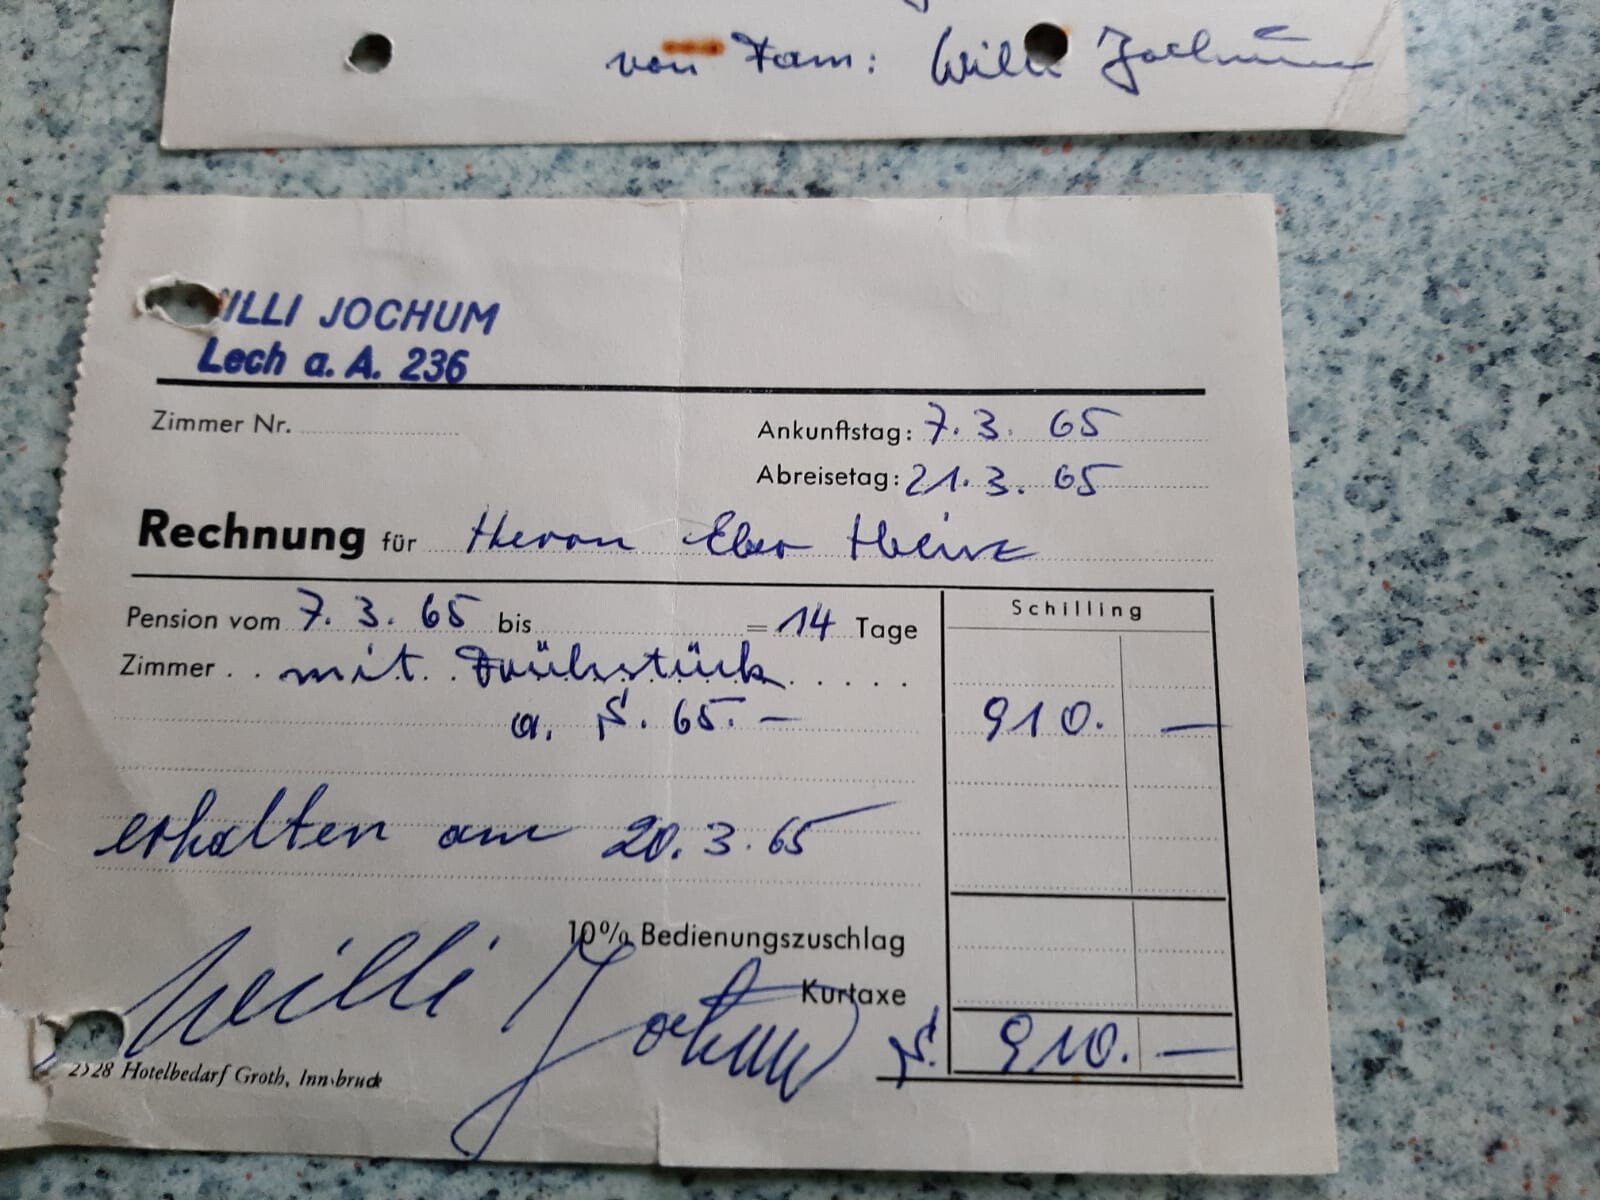 von Fam: Willi Jochum
ILLI JOCHUM
Lech a. A. 236
Zimmer Nr.
Ankunftstag: 7. 3. 65
Abreisetag: 21. 3. 65
Rechnung für Herrn Eber Heinz
Schilling
Pension vom 7. 3. 65 bis = 14 Tage
Zimmer . . mit Frühstück . . . . .
a. S. 65. — 910. —
erhalten am 20. 3. 65
10% Bedienungszuschlag
Kurtaxe
Willi Jochum S. 910. —
2528 Hotelbedarf Groth, Innsbruck